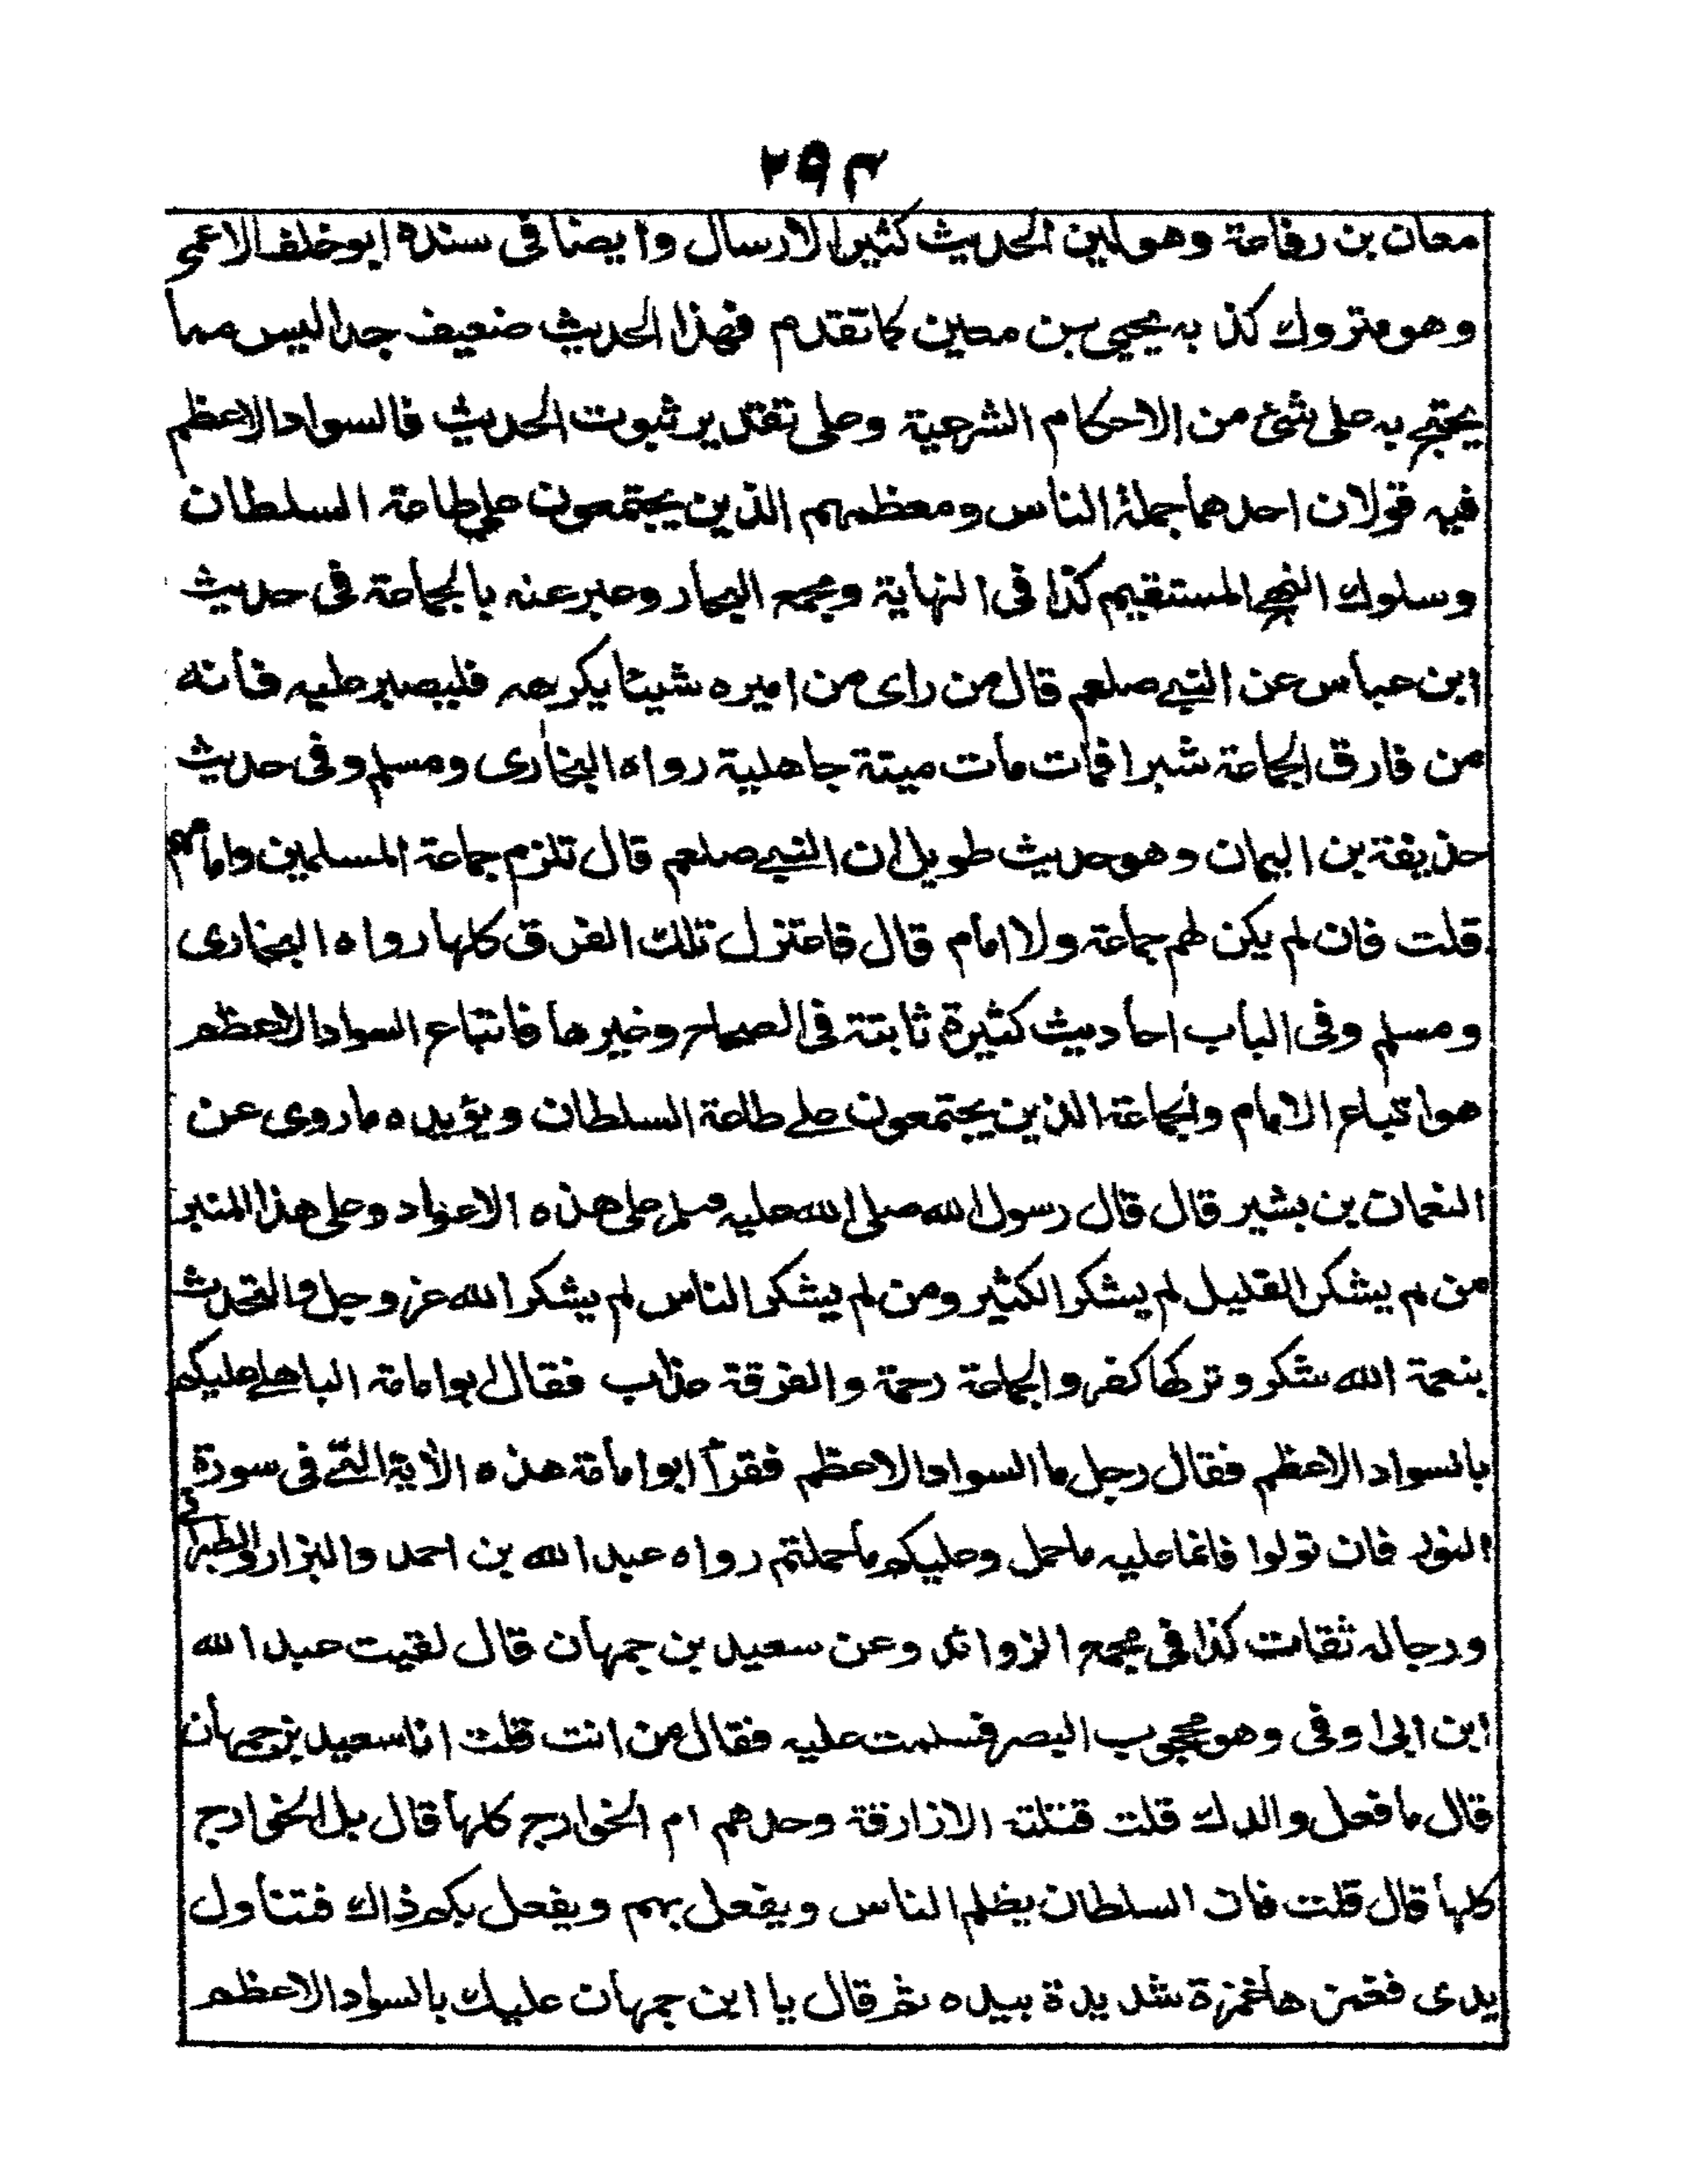 ٢٩٤
معان بن رفاعة وهو لين الحديث كثير الارسال وايضا فى سنده ابو خلف الاعمى
وهو متروك كذبه يحيى بن معين كما تقدم فهذا الحديث ضعيف جدا ليس مما
يحتج به على شئ من الاحكام الشرعية وعلى تقدير ثبوت الحديث فالسواد الاعظم
فيه قولان احدهما جملة الناس ومعظمهم الذين يجتمعون على طاعة السلطان
وسلوك النهج المستقيم كذا فى النهاية ومجمع البحار وعبر عنه بالجماعة فى حديث
ابن عباس عن النبي صلعم قال من راى من اميره شيئا يكرهه فليصبر عليه فانه
من فارق الجماعة شبرا فمات مات ميتة جاهلية رواه البخارى ومسلم وفى حديث
حذيفة بن اليمان وهو حديث طويل ان النبي صلعم قال تلزم جماعة المسلمين وامامهم
قلت فان لم يكن لهم جماعة ولا امام قال فاعتزل تلك الفرق كلها رواه البخارى
ومسلم وفى الباب احاديث كثيرة ثابتة فى الصحاح وغيرها فاتباع السواد الاعظم
هو اتباع الامام والجماعة الذين يجتمعون على طاعة السلطان ويؤيده ما روى عن
النعمان بن بشير قال قال رسول الله صلى الله عليه وسلم على هذه الاعواد وعلى هذا المنبر
من لم يشكر القليل لم يشكر الكثير ومن لم يشكر الناس لم يشكر الله عز وجل والتحدث
بنعمة الله شكر وتركها كفر والجماعة رحمة والفرقة عذاب فقال ابو امامة الباهلي عليكم
بالسواد الاعظم فقال رجل ما السواد الاعظم فقرأ ابو امامة هذه الأية التي فى سورة
النور فان تولوا فانما عليه ما حمل وعليكم ما حملتم رواه عبد الله بن احمد والبزار والطبرانى
ورجاله ثقات كذا فى مجمع الزوائد وعن سعيد بن جمهان قال لقيت عبد الله
ابن ابى اوفى وهو محجوب البصر فسلمت عليه فقال من انت قلت انا سعيد بن جمهان
قال ما فعل والدك قلت قتلته الازارقة وحدهم ام الخوارج كلها قال بل الخوارج
كلها قال قلت فان السلطان يظلم الناس ويفعل بهم ويفعل بكم ذاك فتناول
يدى فغمزها غمزة شديدة بيده ثم قال يا ابن جمهان عليك بالسواد الاعظم